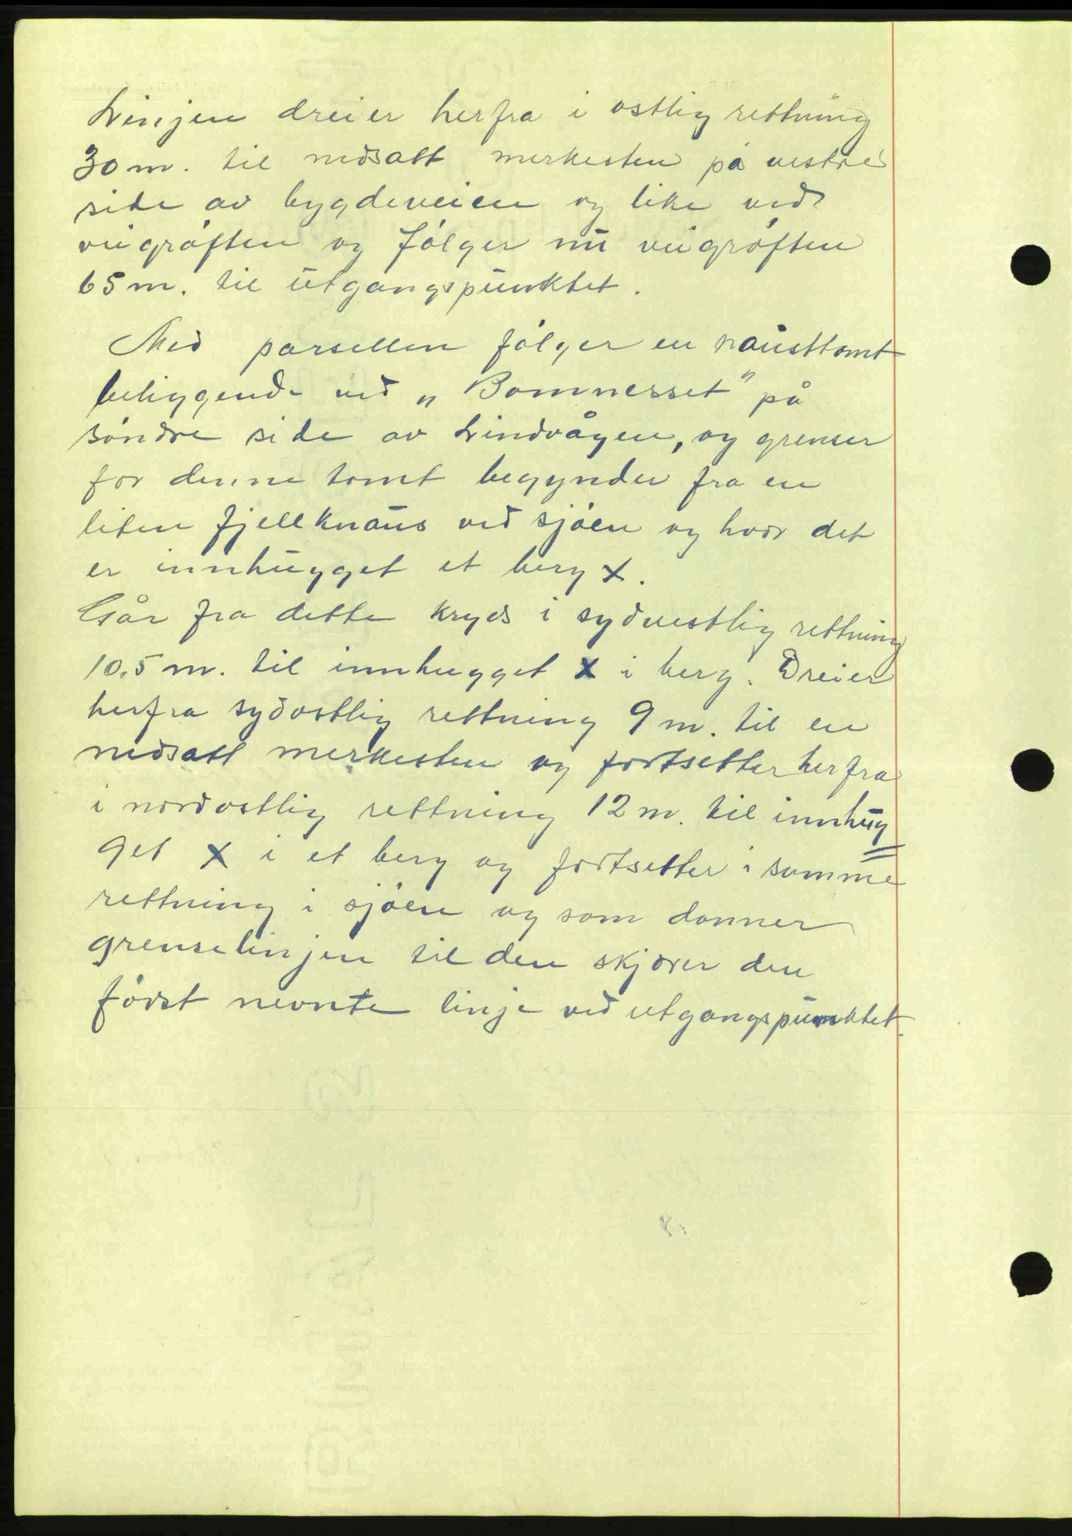 Linjen dreier herfra i østlig rettning
30 m. til nedsatt merkesten på vestre
side av bygdeveien og like ved
veigrøften og følger nu veigrøften
65 m. til utgangspunktet.
Med parsellen følger en nausttomt
beliggende ved „Bommesset" på
søndre side av Lindvågen, og grenser
for denne tomt begynder fra en
liten fjellknaus ved sjøen og hvor det
er innhugget et berg X.
Går fra dette kryds i sydvestlig rettning
10,5 m. til innhugget X i berg. Dreier
herfra sydøstlig rettning 9 m. til en
nedsatt merkesten og fortsetter herfra
i nordøstlig rettning 12 m. til innhug
get X i et berg og fortsetter i samme
rettning i sjøen og som danner
grenselinjen til den skjærer den
først nevnte linje ved utgangspunktet.